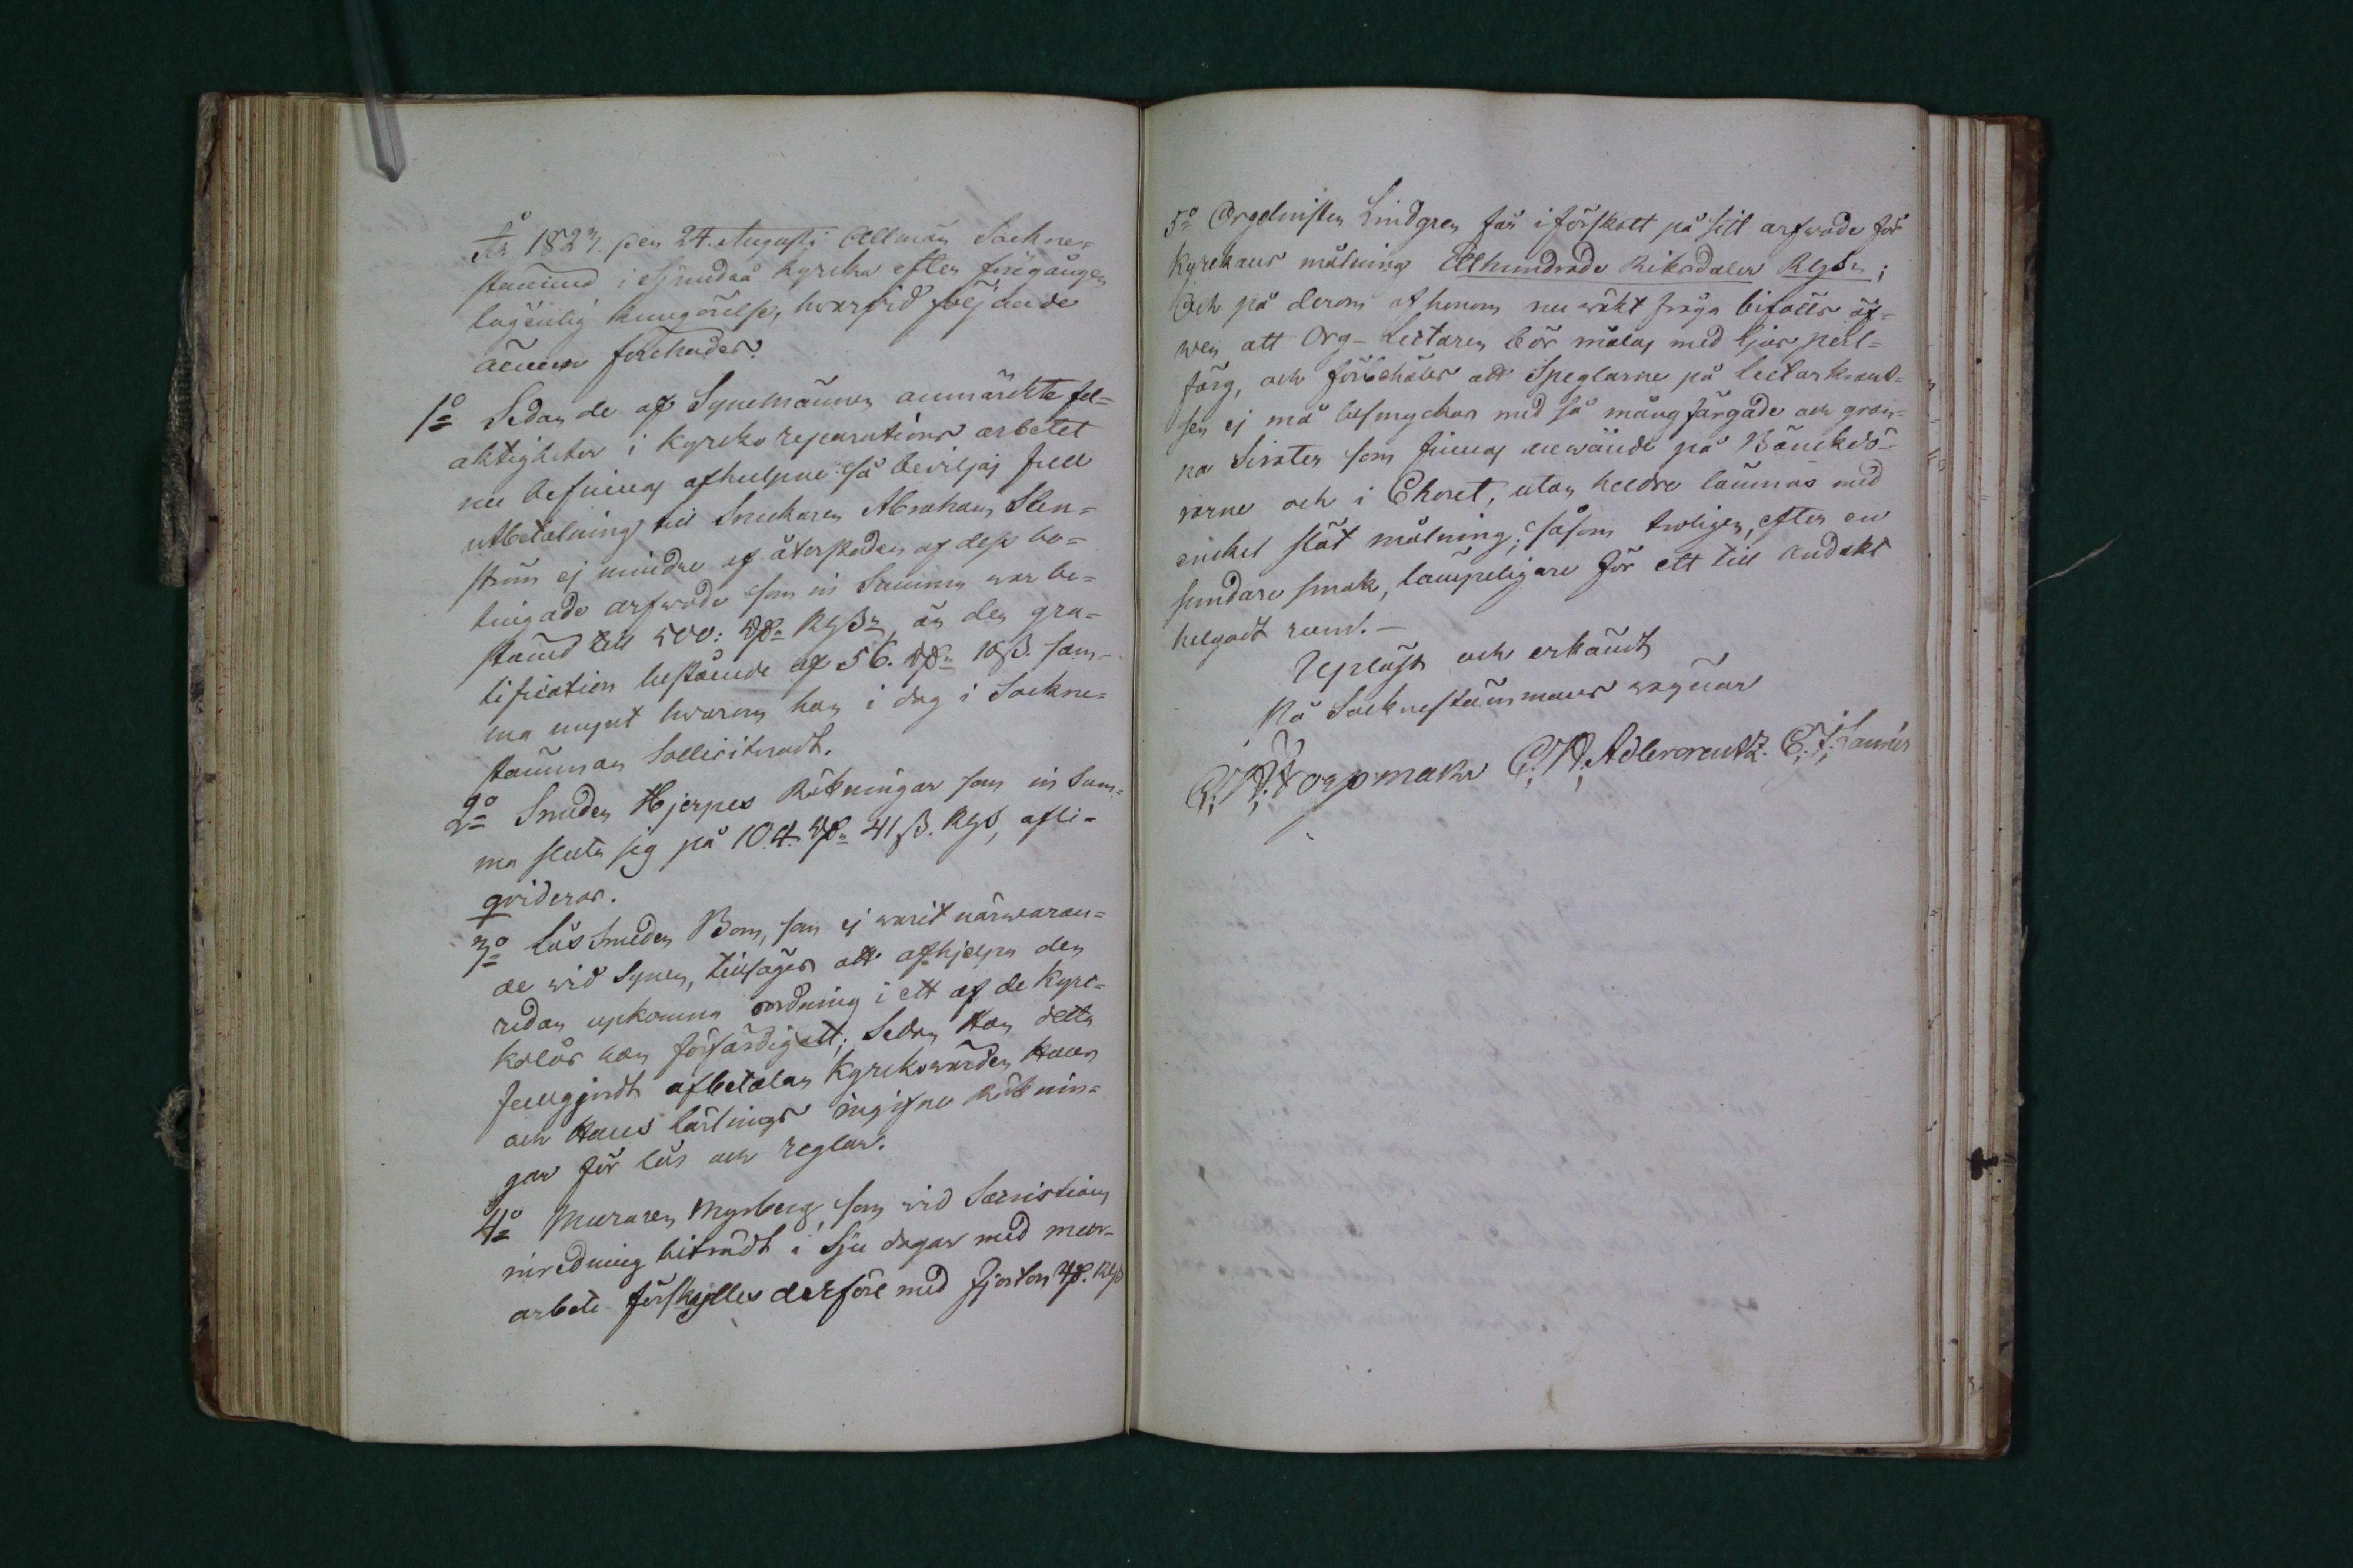 År 1823. den 24. Augusti Allmän Sockne-
stämma i Kyrka efter föregången
laglig kungörelse, hvarvid följande
ämnen förehades.
1o Sedan de af Synemännen anmärkte fel-
aktigheter i Kyrko reparations arbetet
nu befinnas afhulpne så beviljas full
utbetalning till Snickaren Abraham Sten-
ström ej mindre af återstoden af dess be-
tingade arfwode som in Summa war be-
stämd till 500: Rdr Rgs, än den gra-
tification bestående af 56. Rdr 10 ß. sam-
ma mynt hwarom han i dag i Sockne-
stämman solliciteradt.
2o Smeden Hjerpes Räkningar som in Sum-
ma sluta sig på 104. Rdr 41 ß. Rgs, afli-
qvideras.
3o Låssmeden Bom, som ej warit närwaran-
de wid Synen, tillsäges att afhjelpa den
redan upkomna oordning i ett af de Kyrk-
kolås han förfärdigatt; Sedan Han detta
fullgjordt afbetalar Kyrkowärden Hans
och Hans lärlings ingifne Räknin-
gar för lås och reglar.
4o Muraren Myrberg som wid Sacristians
inredning biträdt i Sju dagar med mur-
arbete förskylles derföre med fjorton Rdr. Rgs
5o Orgelnisten Lindgren får i förskott på sitt arfwode för
Kyrkans målning Etthundrade Riksdaler Rgs;
Och på derom af honom nu wäkt fråga bifalles äf-
wen att Org-Lectaren bör målas med ljus perl-
färg, och förbehålles att Speglarne på Lectarkrant-
sen ej må besmyckas med så mång färgade och gran-
na Sirater som finnas anwände på Bänckdö-
rarne och i Choret, utan heldre lämnas med
enckel slät målning; såsom troligen, efter en
sundare smak, lämpeligare för ett till andakt
helgadt rum. -
Upläst och erkändt
På Sockenstämmans wägnar
C. W. Adlercrantz. C. J.